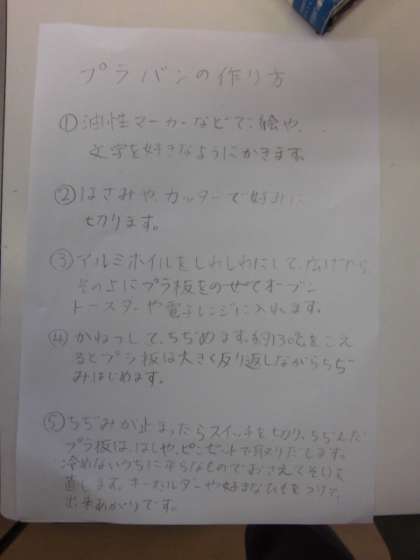 プラバンの作り方
①油性マーカーなどで、絵や、
文字を好きなようにかきます。
②はさみや、カッターで好みに
切ります。
③アルミホイルをしわしわにして、広げてから
その上にプラ板をのせてオーブン
トースターや電子レンジに入れます。
④かねつして、ちぢめます。約130℃をこえ
るとプラ板は大きく反り返しながらちぢ
みはじめます。
⑤ちぢみが止まったらスイッチを切り、ちぢんだ
プラ板は、はしや、ピンセットで取りだします。
冷めないうちに平らなものでおさえてそりを
直します。キーホルダーや好きなひもをつけて、
出来あがりです。